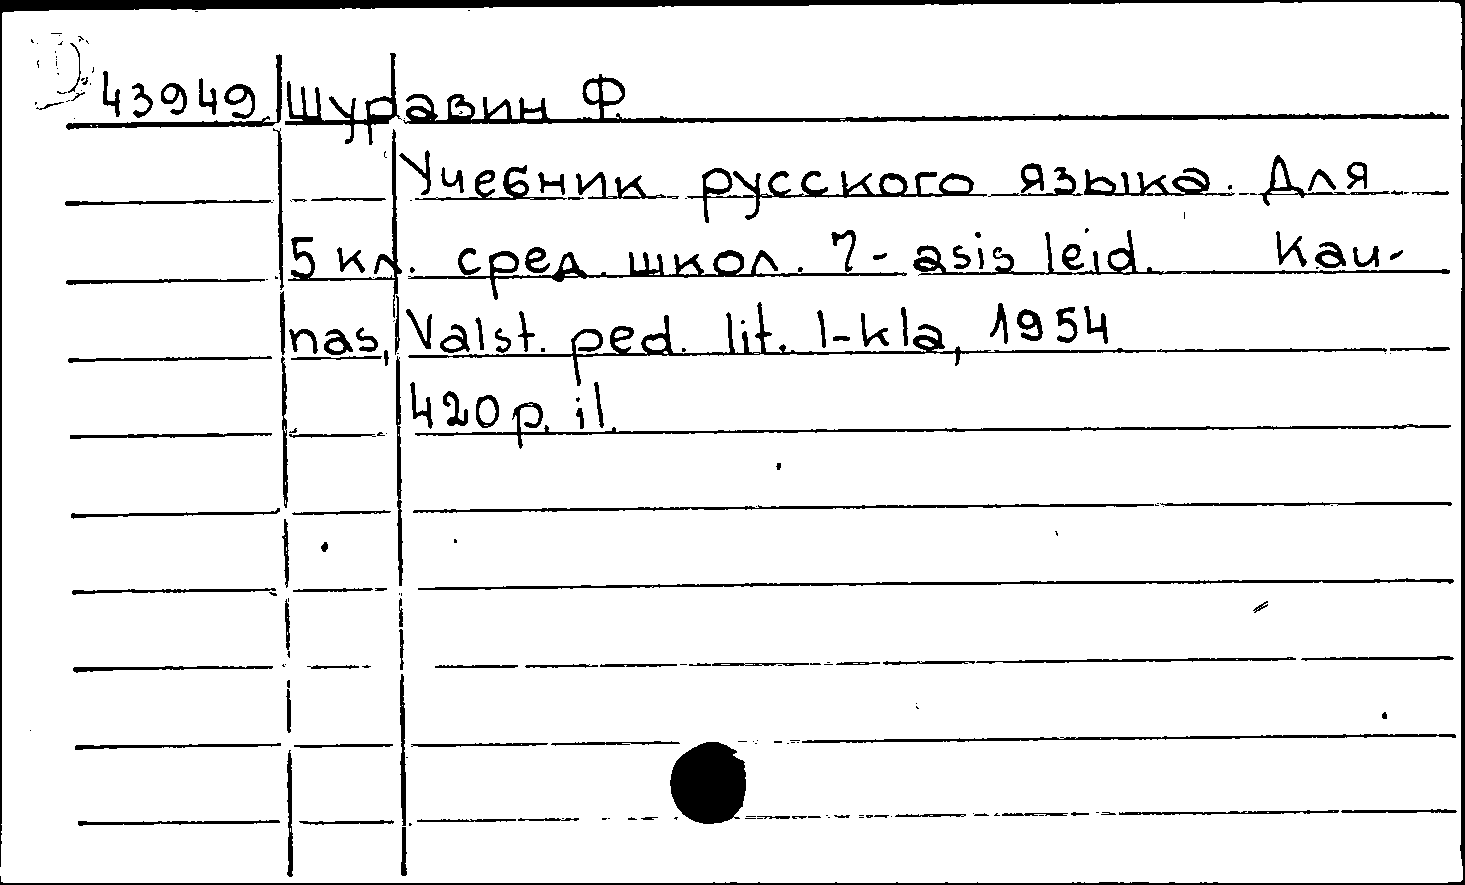 43949 Шуравин Ф.
Учебник русского языка. Для
5 кл. сред. школ. 7-asis leid. Kau-
nas, Valst. ped. lit. l-kla, 1954
420 p. il.